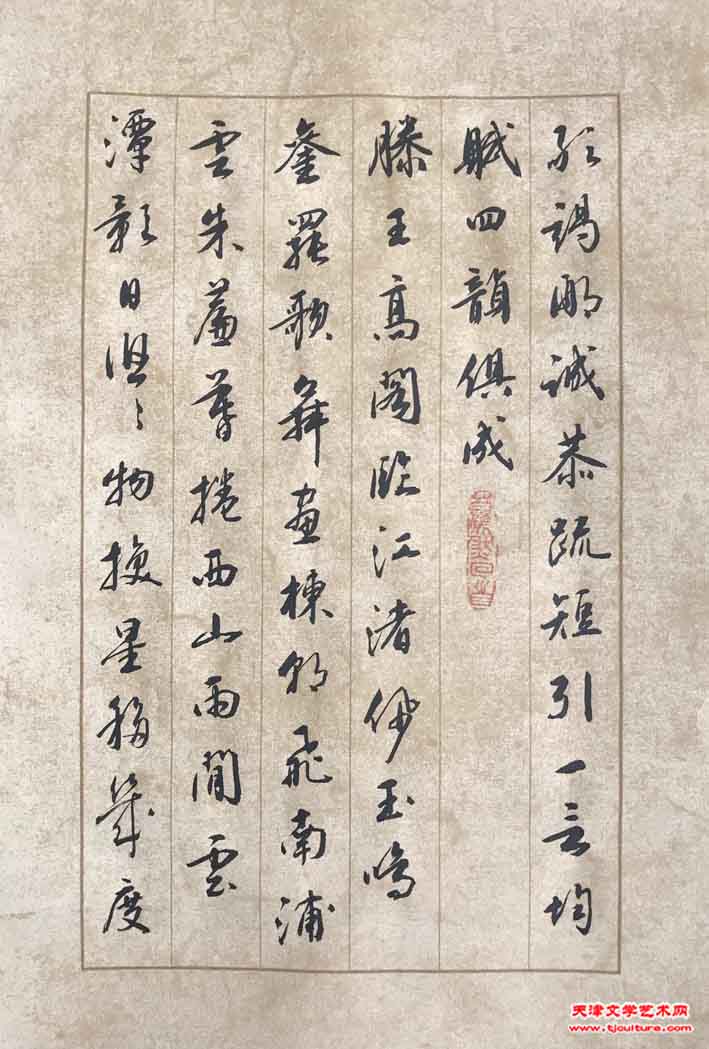 敢竭鄙誠恭疏短引一言均
賦四韻俱成
滕王高閣臨江渚佩玉鳴
鑾罷歌舞畫棟朝飛南浦
雲朱簾暮捲西山雨閒雲
潭影日悠々物換星移幾度
天津文学艺术网
www.tjculture.com